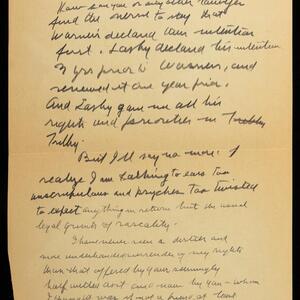 How can you or any other lawyer
find the nerve to say that
Warners declared their intention
first. Lasky declared his intention
3 yrs prior to Warners, and
renewed it one year prior.
And Lasky gave me all his
rights and priorities in
Trilby.
But I'll say no more. I
realize I am talking to ears too
unscrupulous and psyches too twisted
to expect anything in return but the usual
legal grunts of rascality.
I have never seen a dirtier and
more underhanded surrender of my rights
than that offered by your seemingly
half and now by you – whom
I was not a friend, at least